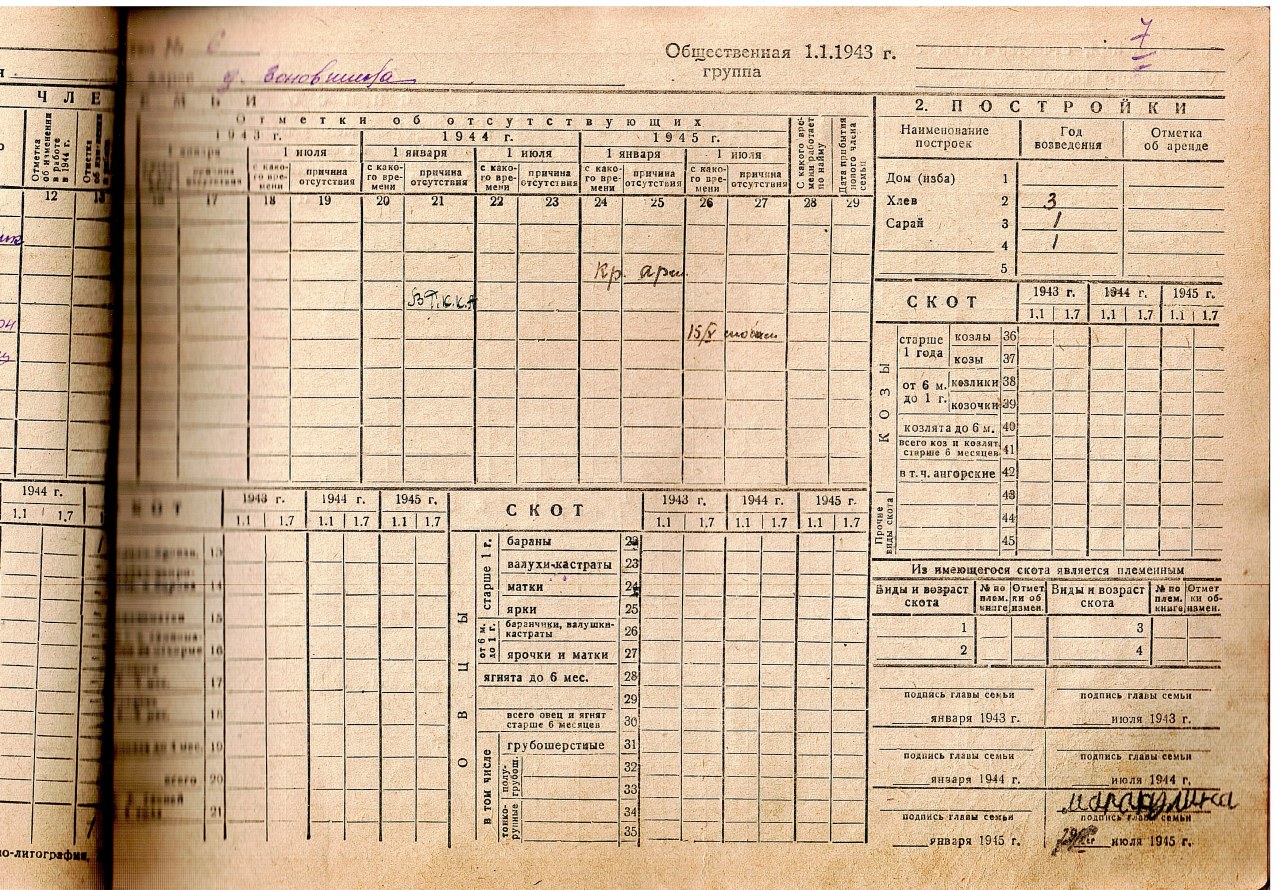 № 6
7
Общественная 1.1.1943 г.
группа
д.
ЧЛЕ
МЬИ
Отметки об отсутствующих
1943 г. 1944 г. 1945 г.
1 января 1 июля 1 января 1 июля 1 января 1 июля
Отметка об изменении в работе в 1944 г.
Отметка
причина отсутствия
с како-го вре-мени
причина отсутствия
с како-го вре-мени
причина отсутствия
с како-го вре-мени
причина отсутствия
с како-го вре-мени
причина отсутствия
с како-го вре-мени
причина отсутствия
С какого вре-мени работает по найму
Дата прибытия нового члена семьи
12 13 16 17 18 19 20 21 22 23 24 25 26 27 28 29
Кр. арм.
В Р.К.К.А
15/V
2. ПОСТРОЙКИ
Наименование построек Год возведения Отметка об аренде
Дом (изба) 1
Хлев 2 3
Сарай 3 1
4 1
5
СКОТ 1943 г. 1944 г. 1945 г.
1.1 1.7 1.1 1.7 1.1 1.7
КОЗЫ
старше 1 года
козлы 36
козы 37
от 6 м. до 1 г.
козлики 38
козочки 39
козлята до 6 м. 40
всего коз и козлят старше 6 месяцев 41
в т. ч. ангорские 42
Прочие виды скота
43
44
45
Из имеющегося скота является племенным
Виды и возраст скота № по плем. книге Отмет ки об измен. Виды и возраст скота № по плем. книге Отмет ки об измен.
1 3
2 4
подпись главы семьи подпись главы семьи
января 1943 г. июля 1943 г.
подпись главы семьи подпись главы семьи
января 1944 г. июля 1944 г.
подпись главы семьи подпись главы семьи
января 1945 г. июля 1945 г.
1944 г.
1.1 1.7
КОТ 1943 г. 1944 г. 1945 г.
1.1 1.7 1.1 1.7 1.1 1.7
13
14
15
16
17
18
19
всего 20
21
СКОТ 1943 г. 1944 г. 1945 г.
1.1 1.7 1.1 1.7 1.1 1.7
ОВЦЫ
старше 1 г.
бараны 22
валухи-кастраты 23
матки 24
ярки 25
от 6 м. до 1 г.
баранчики, валушки-кастраты 26
ярочки и матки 27
ягнята до 6 мес. 28
29
всего овец и ягнят старше 6 месяцев 30
в том числе
грубошерстные 31
полу-грубош.
32
33
тонко-рунные
34
35
но-литография,